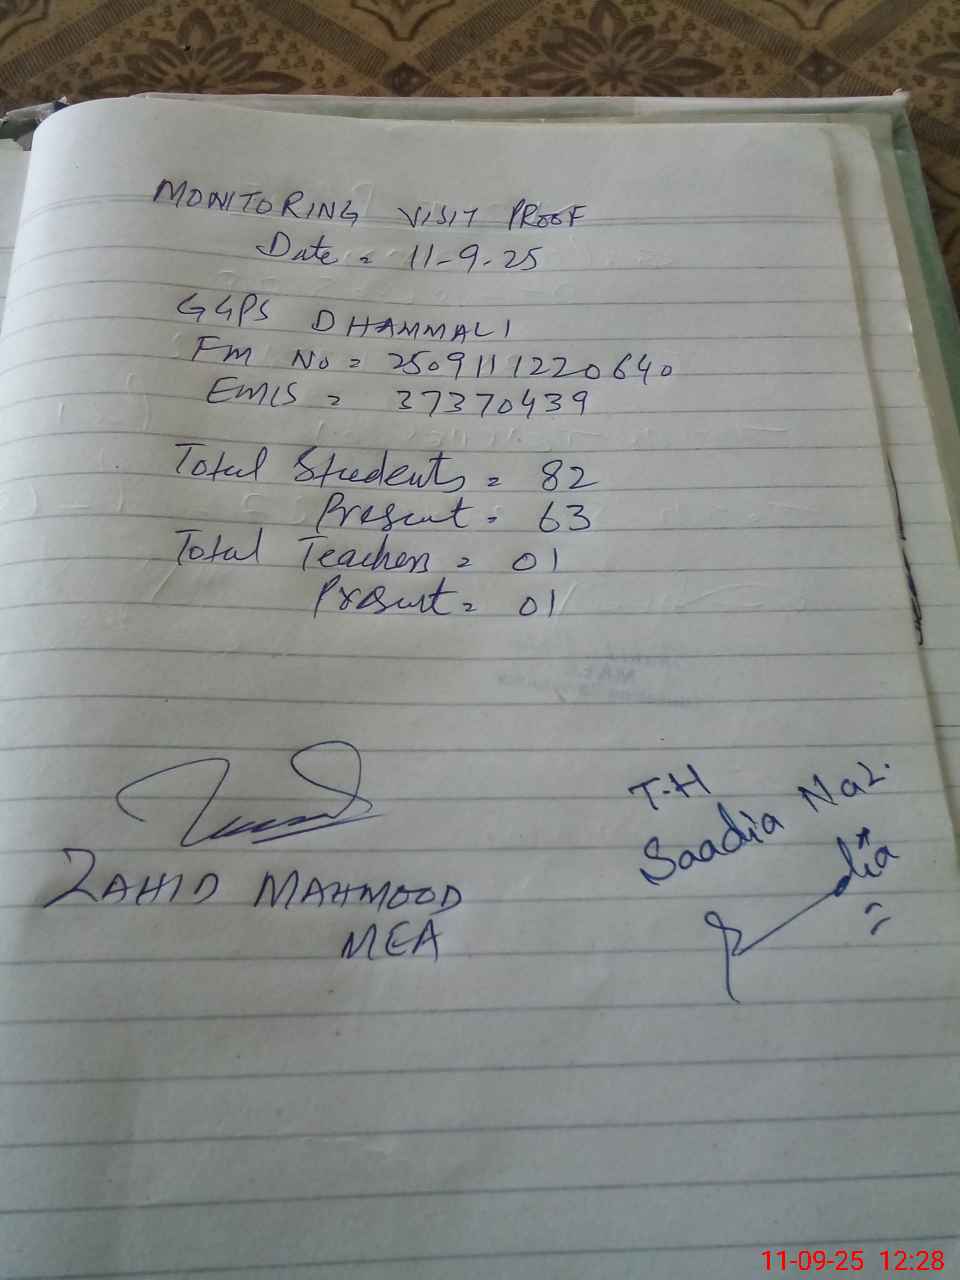 MONITORING VISIT PROOF
Date = 11-9-25
GGPS DHAMMALI
FM No = 2509111220640
EMIS = 37370439
Total Students = 82
Present = 63
Total Teachers = 01
Present = 01
ZAHID MAHMOOD
MEA
T-H
Saadia Naz.
11-09-25 12:28